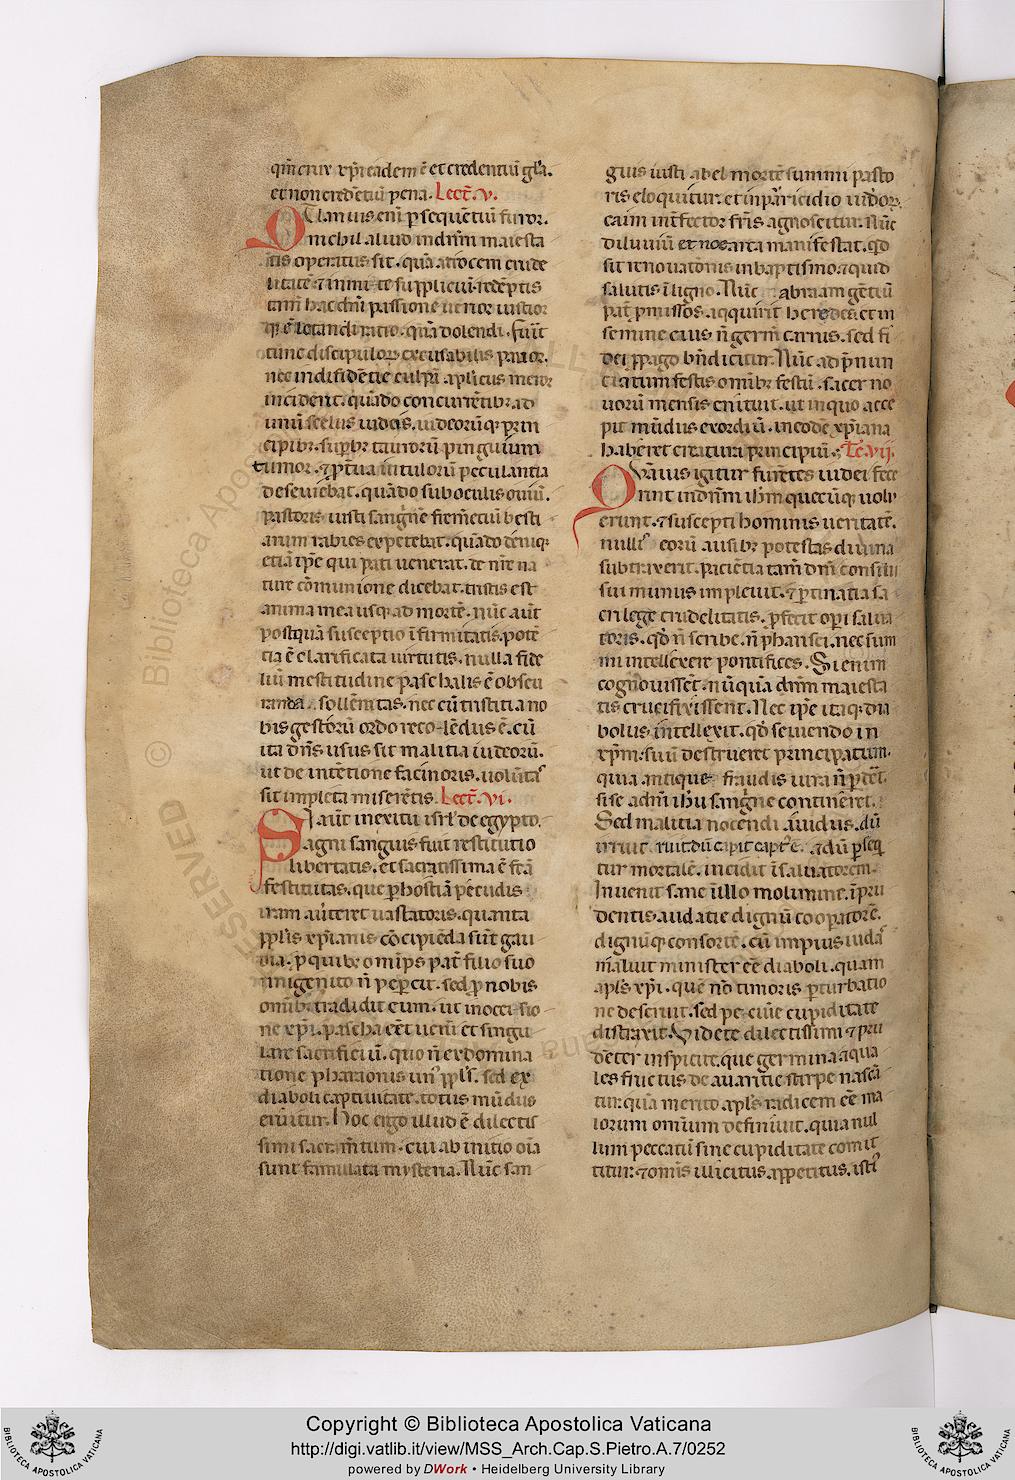 qm̄ crux xp̄i eadem ē et credentiū gl̄a.
et non credētiū pena. Lectō. v.
Quāuis enī p̄sequētiū furor.
nichil aliud in dn̄m maiesta
tis operatus sit. quā atrocem crude
tam̄ hac dn̄i passione
q̄ ē letandi ratio. quā dolendi. fuit̄
tunc discipulor̄ excusabilis pauor.
nec in diffidētie culpā apl̄icus meror
incidert̄. quādo concurrētibꝫ ad
unū scelus iudeis. iudeorūqꝫ prin
cipibꝫ. suꝑbꝫ taurorū pinguium
tumor. ⁊ ꝓt̄ua uitulorū petulantia
deseuiebat. quādo sub oculis ouiū.
pastoris iusti sangīne frem̄etiū besti
arum rabies expetebat. quādo deniqꝫ
etiā ip̄e qui pati uenerat. de nr̄e na
ture cōmunione dicebat. tristis est
anima mea usqꝫ ad mortē. nūc aut̄
postquā susceptio īfirmitatis. potē
tia ē clarificata uirtutis. nulla fide
liū mestitudine paschalis ē obscu
randa sollēnitas. nec cū tristitia no
bis gestorū ordo recolēdus ē. cū
ita dn̄s usus sit malitia iudeorū.
ut de intētione facinoris. uolūtas
sit impleta miserētis. Lectō. vi.
Si aut̄ in exitu isrl̄ de egypto.
agni sanguis fuit restitutio
libertatis. et sacratissima ē fc̄a
festiuitas. que ꝑ hostiā pecudis
iram auerteret uastatoris. quanta
ppl̄is xp̄ianis cōcipiēda sūt gau
dia. ꝑ quibꝫ om̄ps pat̄ filio suo
unigenito n̄ peꝑcit. sed ꝓ nobis
om̄ibꝫ tradidit eum. ut in occisio
ne xp̄i. pascha eēt uerū et singu
lare sacrificiū. quo n̄ ex domina
tione pharaonis unꝰ ppl̄s. sed ex
diaboli captiuitate. totus mūdus
eruitur. Hoc ergo illud ē dilectis
simi sacram̄tum. cui ab initio oīa
sunt famulata mysteria. Nūc san
guis iusti abel mortē summi pasto
ris eloquitur. et in parricidio iudeor̄.
caim int̄fector fr̄is agnoscitur. Nūc
diluuiū et noe arca manifestat. qd̄
sit renouationis in baptismo. ⁊ quid
salutis ī ligno. Nūc abraam gētiū
pat̄ ꝓmissos. acquirit heredes. et in
semine eius n̄ germ̄ carnis. sed fi
dei ꝓpago bn̄dicitur. Nūc ad p̄nun
ciatum festis omībꝫ festū. sacer no
uorū mensis enituit. ut in quo acce
pit mūdus exordiū. in eodē xp̄iana
haberet creatura principiū. Lc̄. vij.
Quāuis igitur furētes iudei fece
rint in dn̄m ihm̄ quecūqꝫ uolu
erunt. ⁊ suscepti hominis ueritatē.
nullis eorū ausibꝫ potestas diuina
subtraxerit. paciētia tam̄ dn̄i consilii
sui munus impleuit. ⁊ ꝑtinatia sa
cri lege crudelitatis. ꝑfecit oꝑi salua
toris. qd̄ n̄ scribe. n̄ pharisei. nec sum
mi intellexere pontifices. Si enim
cognouissēt. nūquā dn̄m maiesta
tis crucifixissent. Nec ip̄e itaqꝫ dia
bolus intellexit. qd̄ seuiendo in
xp̄m. suū destrueret principatum.
quia antique fraudis iura n̄ ꝑdēt.
si se a dn̄i ihū sangīne contineret.
Sed malitia nocendi auidus. dū
irruit. ruit. dū capit capt' ē. ⁊ dū ꝑseq̄
tur mortalē. incidit ī saluatorem.
Inuenit sane ī illo molimine. ī pru
dentis audatie dignū cooꝑatorē.
dignūqꝫ consortē. cū impius iudas
maluit minister eē diaboli. quam
apl̄s xp̄i. quē nō timoris ꝑturbatio
ne deseruit. sed pecūie cupiditate
distraxit. Videte dilectissimi ⁊ pru
dēter inspicite. que germina ⁊ qua
les fructus de auaritie stirpe nascā
tur. quā merito apl̄s radicem eē ma
lorum omnium definiuit. quia nul
lum peccatū sine cupiditate comit
titur. ⁊ omīs illicitus appetitus. isti'
Copyright © Biblioteca Apostolica Vaticana
http://digi.vatlib.it/view/MSS_Arch.Cap.S.Pietro.A.7/0252
powered by DWork • Heidelberg University Library